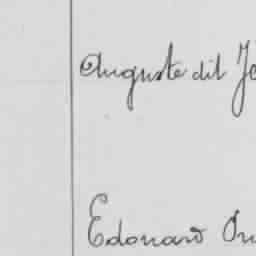 Auguste dit
Edouard